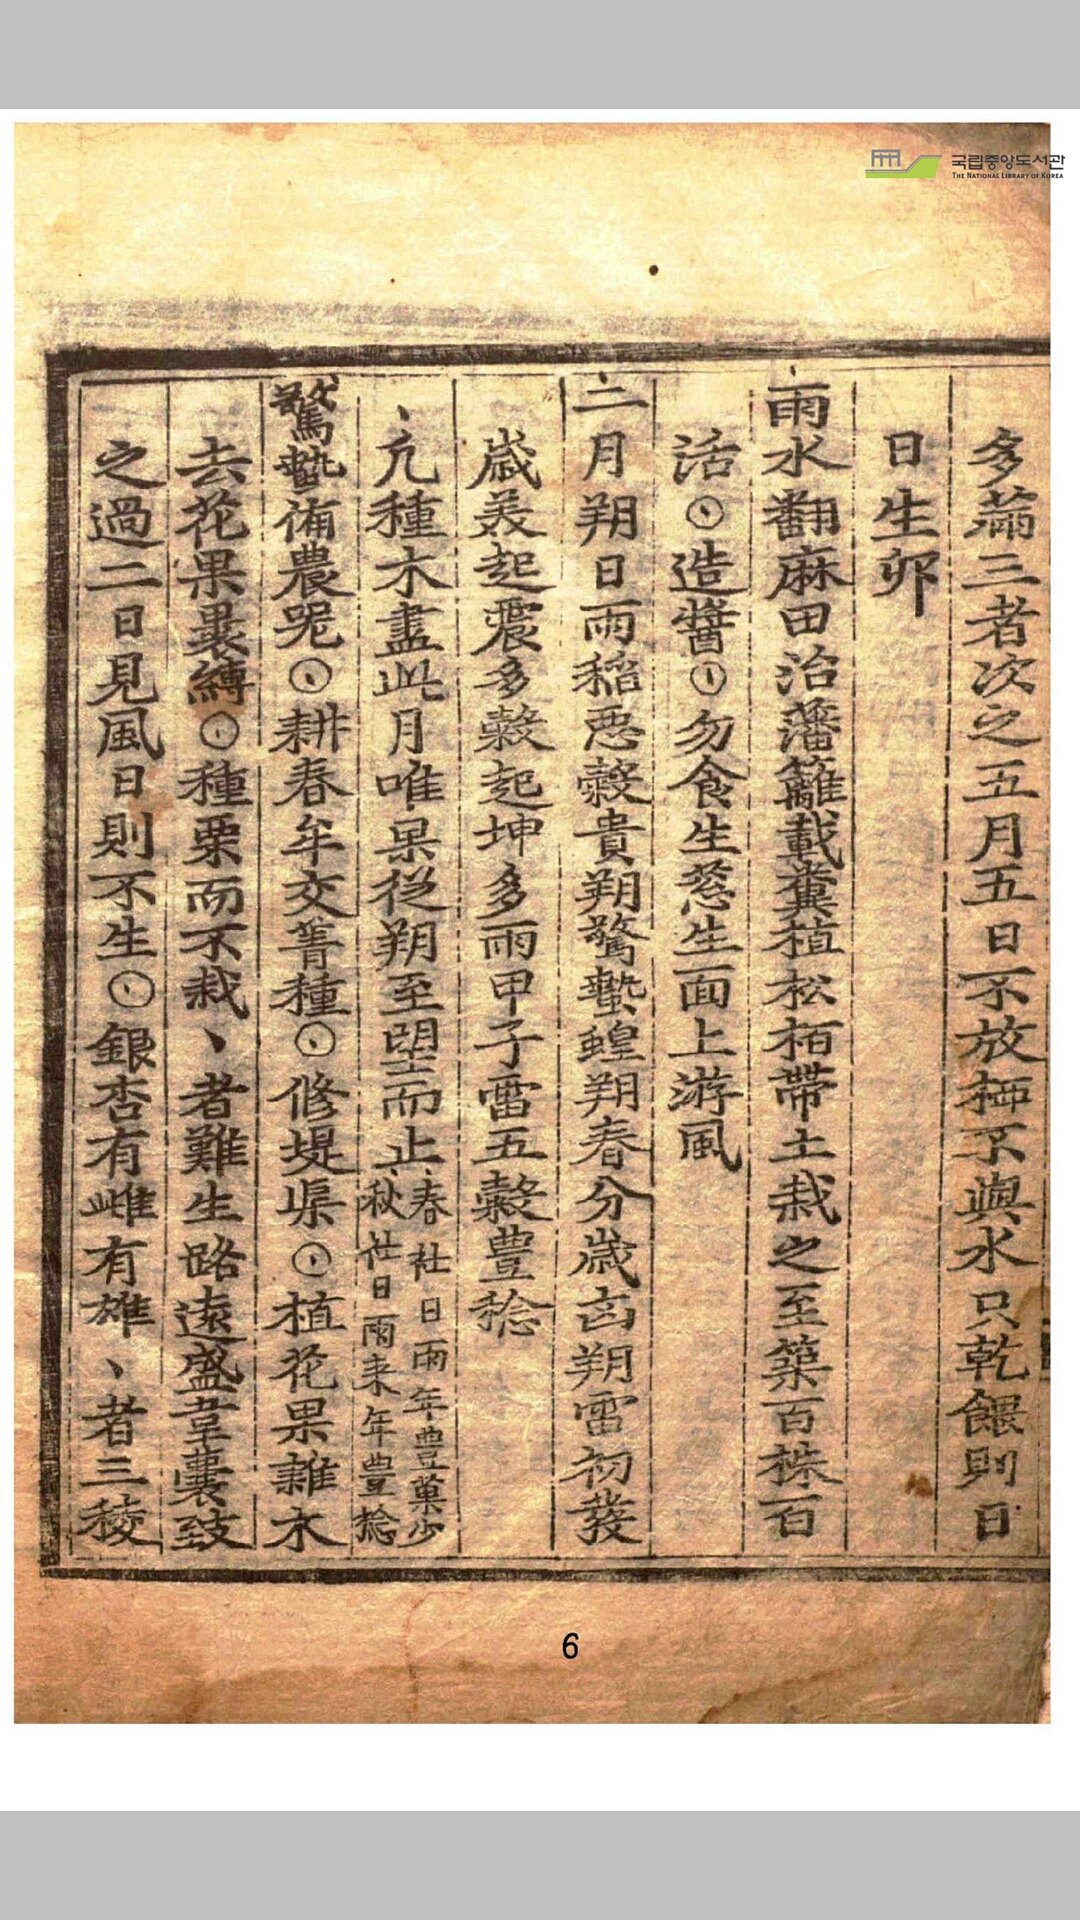 국립중앙도서관
THE NATIONAL LIBRARY OF KOREA
多 三者次之五月五日不放 不與水只乾餵則日
日生卵
雨水翻麻田治藩籬載糞植松栢帶土栽之至築百株百
活〇造醬〇勿食生葱生面上游風
二月朔日雨稲惡糓貴朔驚蟄蝗朔春分歳凶朔雷初發
歳美起震多糓起坤多雨甲子雷五糓豊稔
凢種木盡此月唯果從朔至望而止春社日雨年豊菓少秋社日雨来年豊稔
驚蟄俻農器〇耕春牟交菁種〇修堤渠〇植花果雜木
去花果裹縛〇種栗而不栽、者難生路遠盛韋囊致
之過二日見風日則不生〇銀杏有雌有雄、者三稜
6